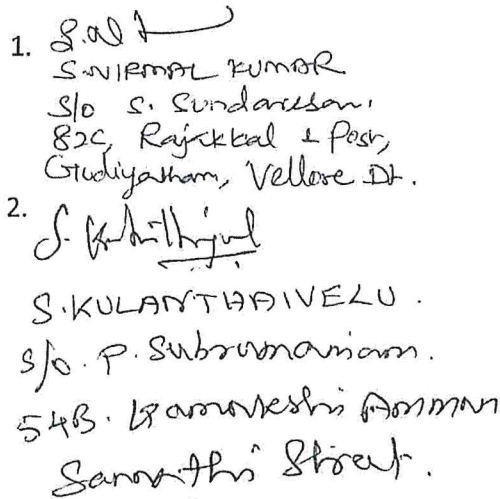 1.
S. NIRMAL KUMAR
S/o S. Sundaresan,
82C, Rajakkal & Post,
Gudiyatham, Vellore Dt.
2.
S. KULANTHAIVELU.
S/o. P. Subramaniam.
54B. Kamakshi Amman
Sannathi Street.